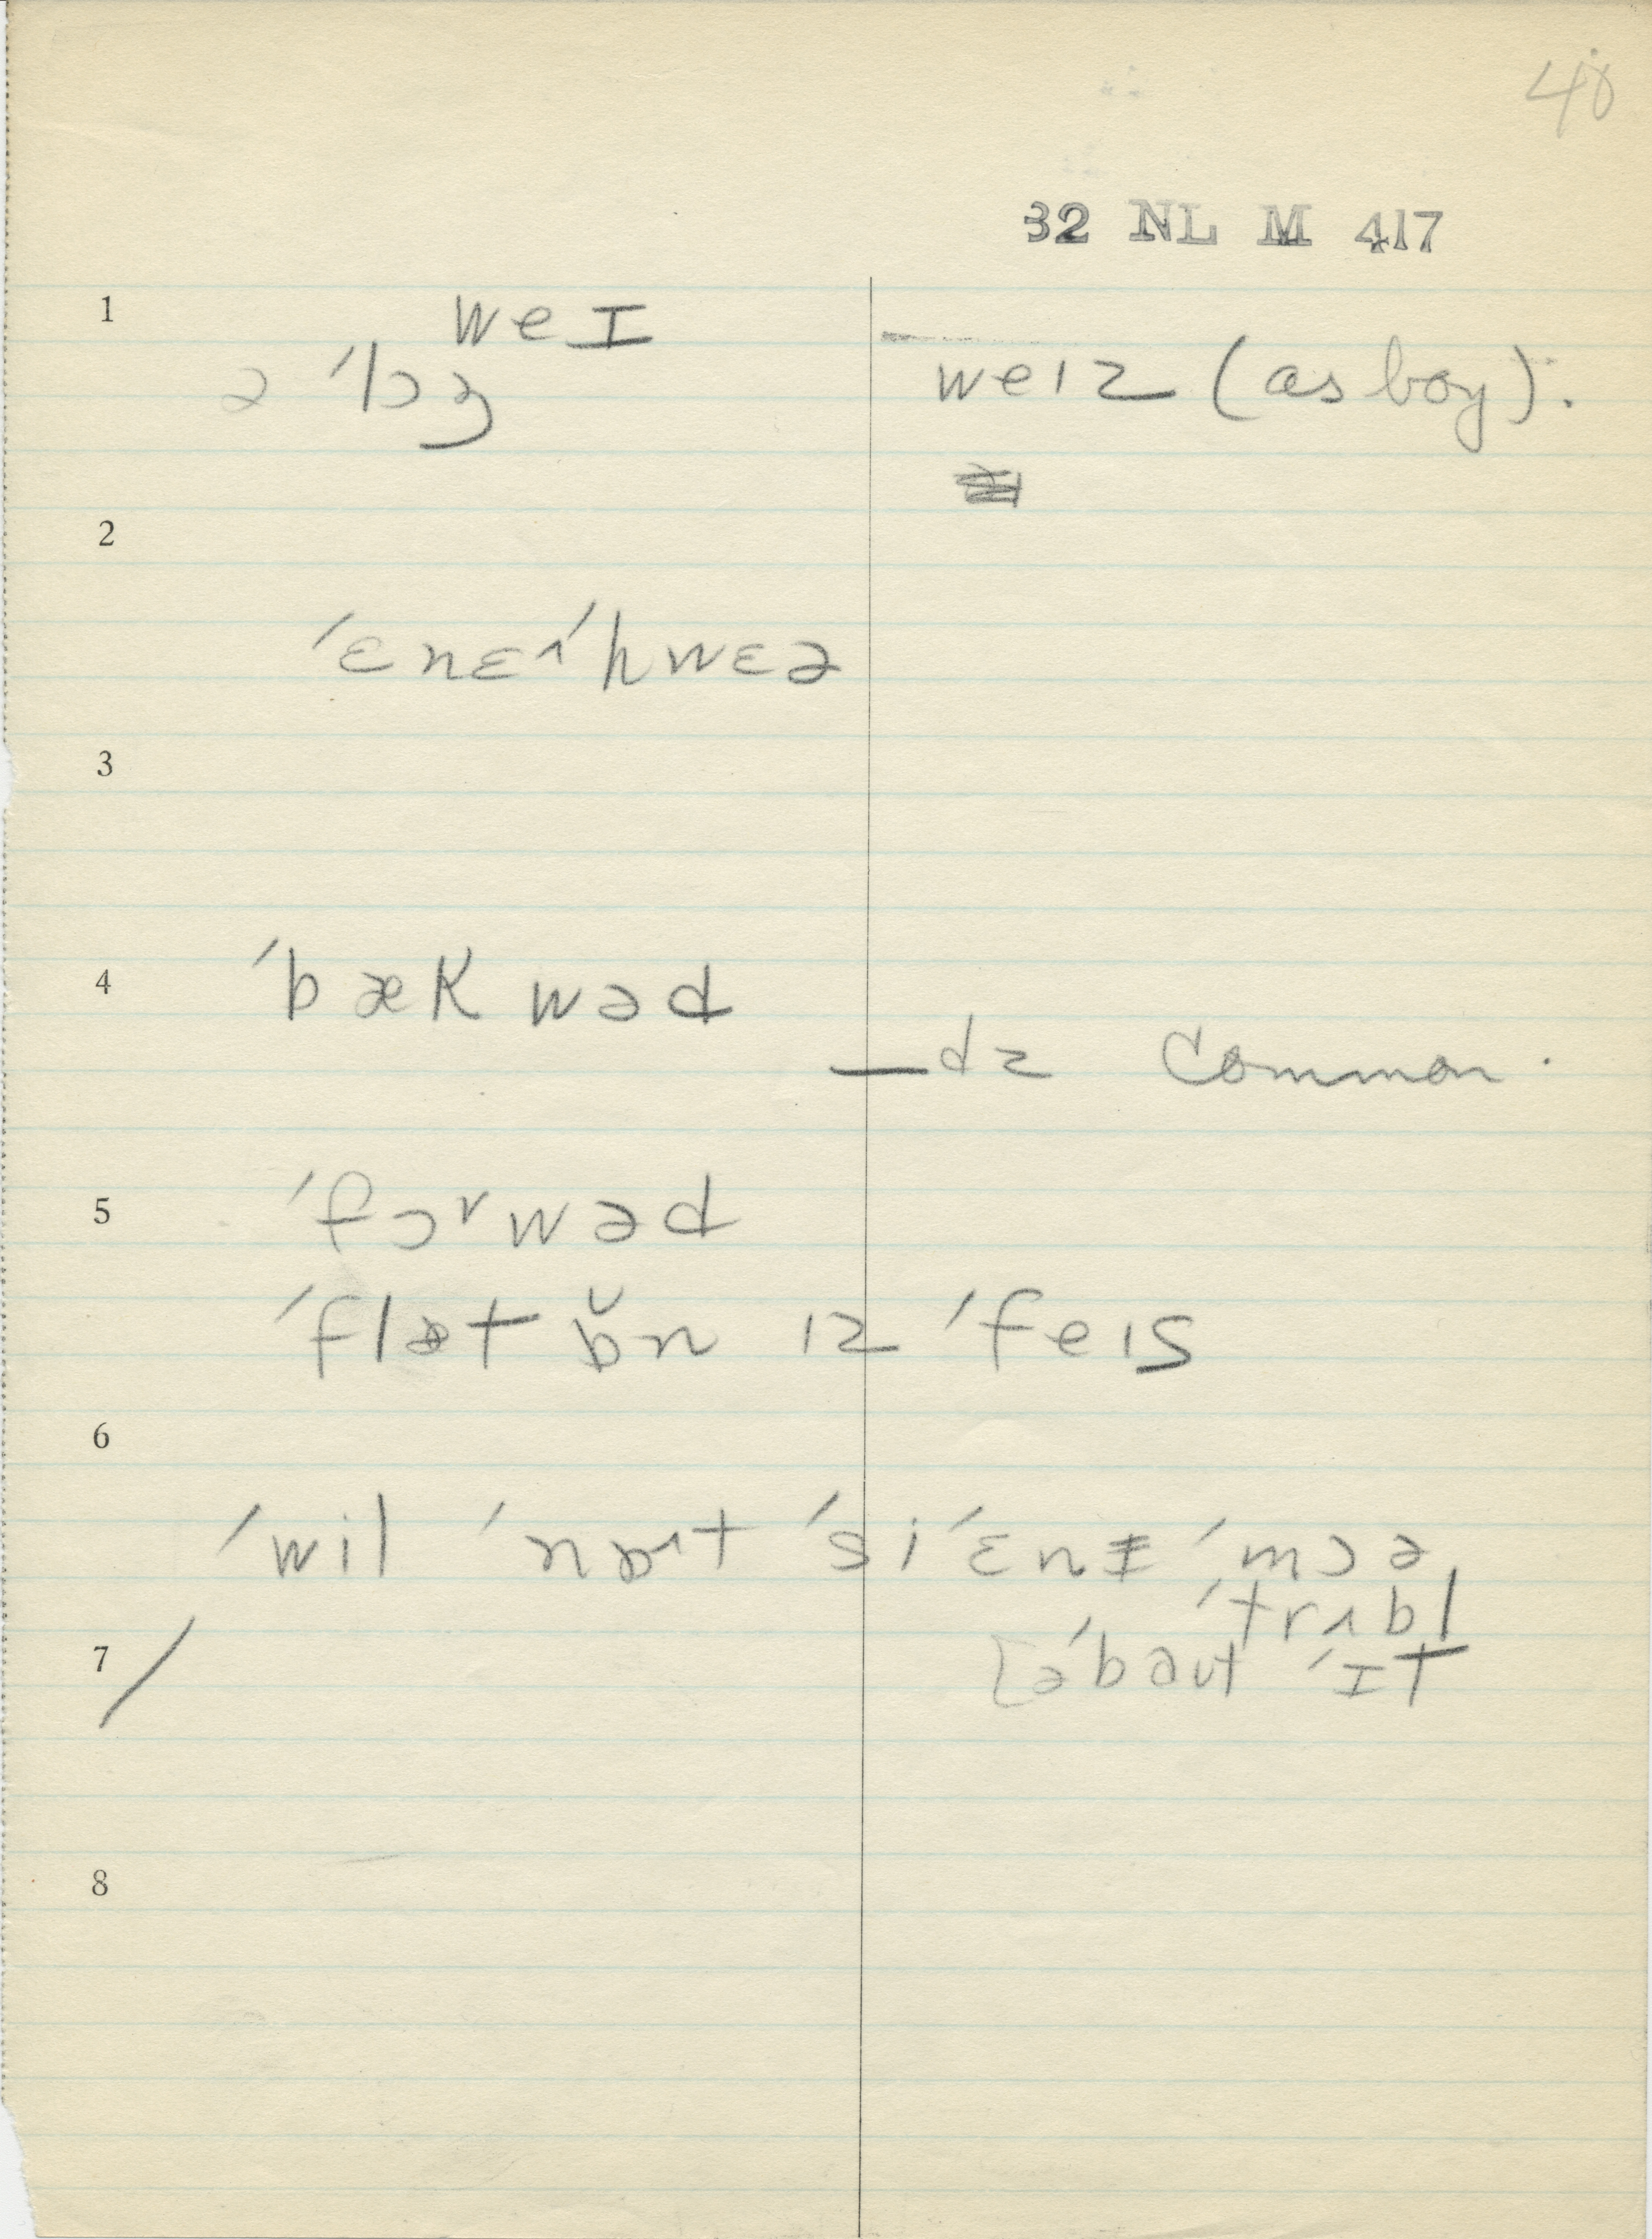 40
32 NL M 417
1
weɪ
ə ˈlɔŋ
weɪz (as boy).
2
ˈɛnɛ˄ˈhwɛə
3
4
ˈbæk wəd
—dz Common.
5
ˈfɔrwəd
ˈflæt ɒ̆n ɪz ˈfeɪs
6
ˈwil ˈnɒ˄t ˈsi ˈɛnɪ ˈmɔə
ˈtrʌbl
7
[əˈbaut ˈɪt
8